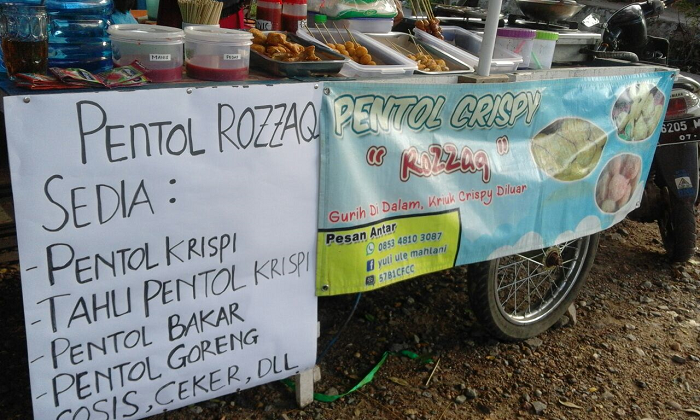 MANIS
PEDAS
PENTOL ROZZAQ
SEDIA :
- PENTOL KRISPI
- TAHU PENTOL KRISPI
- PENTOL BAKAR
- PENTOL GORENG
SOSIS, CEKER, DLL
PENTOL CRISPY
" ROZZAQ "
Gurih Di Dalam, Kriuk Crispy Diluar
Pesan Antar
0853 4810 3087
yuli ule mahtani
5781CFCC
6205